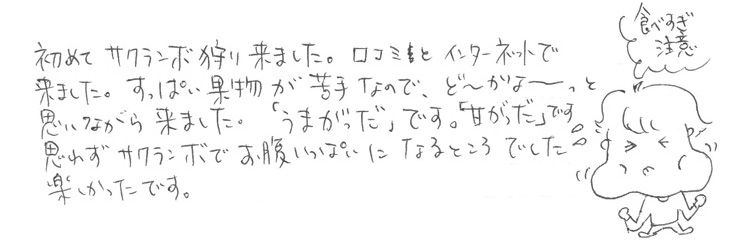 初めて サクランボ狩り来ました。口コミとインターネットで
来ました。すっぱい果物が苦手なので、ど〜かな〜っと
思いながら来ました。「うまがっだ」です。「甘がっだ」です
思わずサクランボでお腹いっぱいになるところでした
楽しかったです。
食べすぎ
注意